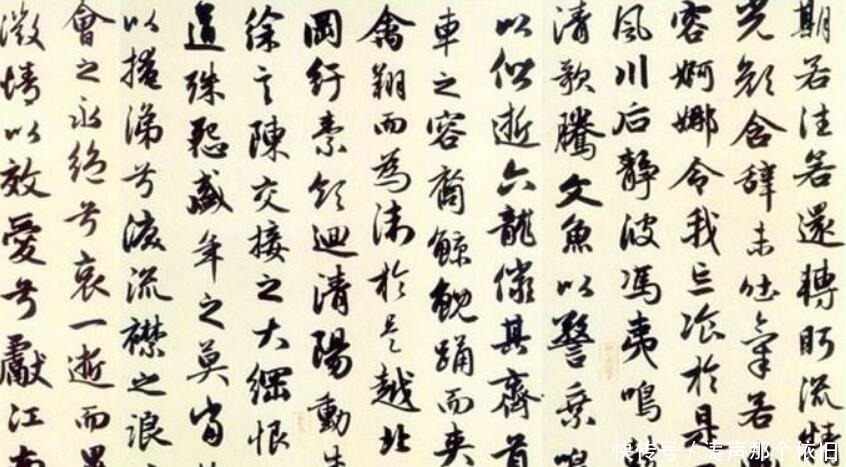 期若往若還轉眄流
光顏含辭未吐氣若
容婀娜令我忘飡於是
風川后靜波馮夷鳴
清歌騰文魚以警乘鳴
以偕逝六龍儼其齊首
車之容裔鯨鯢踊而夾
禽翔而為衛於是越北
岡紆素領迴清陽動朱
徐言陳交接之大綱恨
道殊怨盛年之莫當
以掩涕兮淚流襟之浪
會之永絕兮哀一逝而異
微情以效愛兮獻江南
快传号/涛声那个依旧